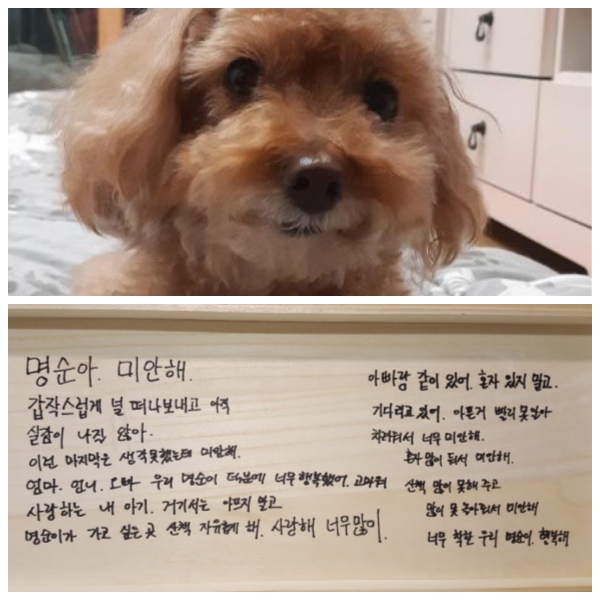 명순아. 미안해.
갑작스럽게 널 떠나보내고 아직
실감이 나질 않아.
이런 마지막은 생각못했는데 미안해.
엄마. 언니. 오빠 우리 명순이 덕분에 너무 행복했어. 고마워
사랑하는 내 아기. 거기서는 아프지 말고
명순이가 가고 싶은 곳 산책 자유롭게 해. 사랑해 너무많이.
아빠랑 같이 있어. 혼자 있지 말고.
기다리고 있어. 아픈거 빨리 못알아
차려줘서 너무 미안해.
혼자 많이 둬서 미안해.
산책 많이 못해 주고
많이 못 놀아줘서 미안해
너무 착한 우리 명순이. 행복해